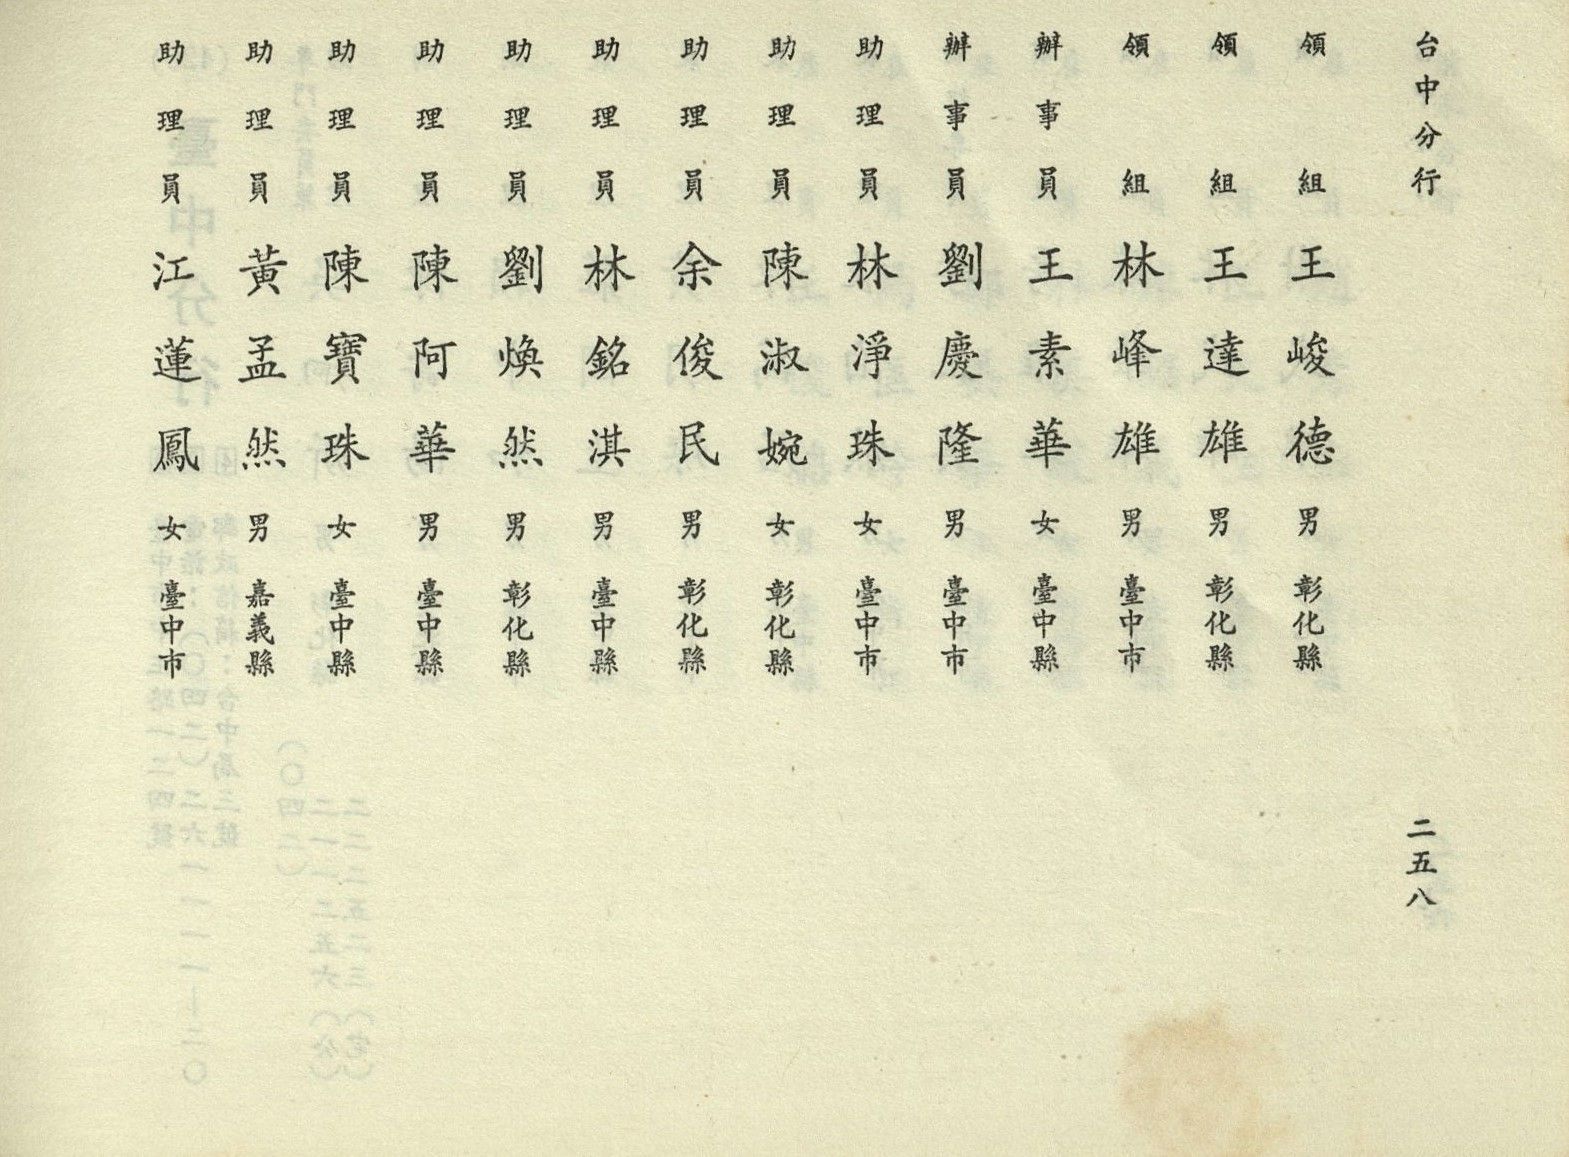 台中分行
二五八
領組 王峻德 男 彰化縣
領組 王達雄 男 彰化縣
領組 林峰雄 男 臺中市
辦事員 王素華 女 臺中縣
辦事員 劉慶隆 男 臺中市
助理員 林淨珠 女 臺中市
助理員 陳淑婉 女 彰化縣
助理員 余俊民 男 彰化縣
助理員 林銘淇 男 臺中縣
助理員 劉煥然 男 彰化縣
助理員 陳阿華 男 臺中縣
助理員 陳寶珠 女 臺中縣
助理員 黃孟然 男 嘉義縣
助理員 江蓮鳳 女 臺中市